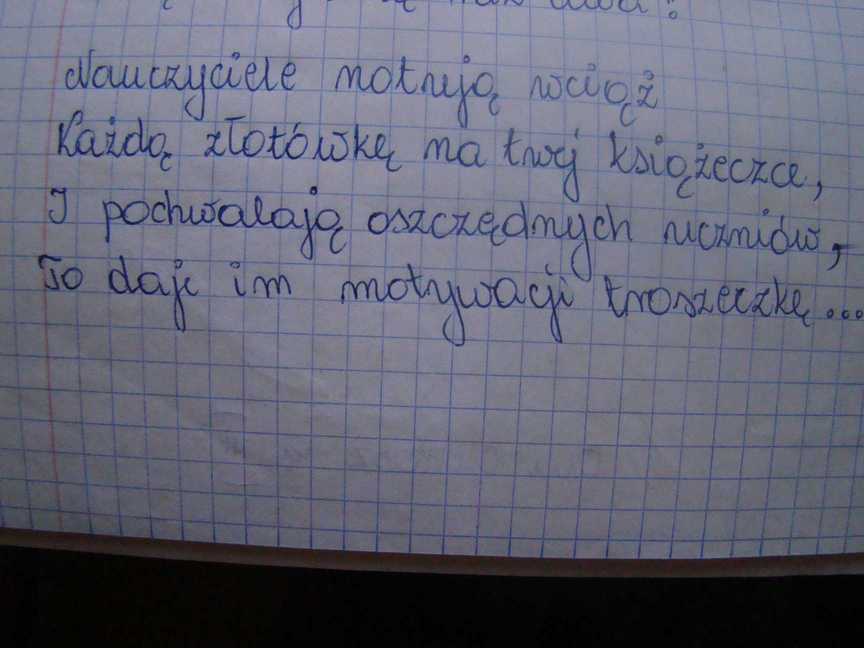 Nauczyciele notują wciąż
Każdą złotówkę na twej książeczce,
I pochwalają oszczędnych uczniów,
To daje im motywacji troszeczkę...